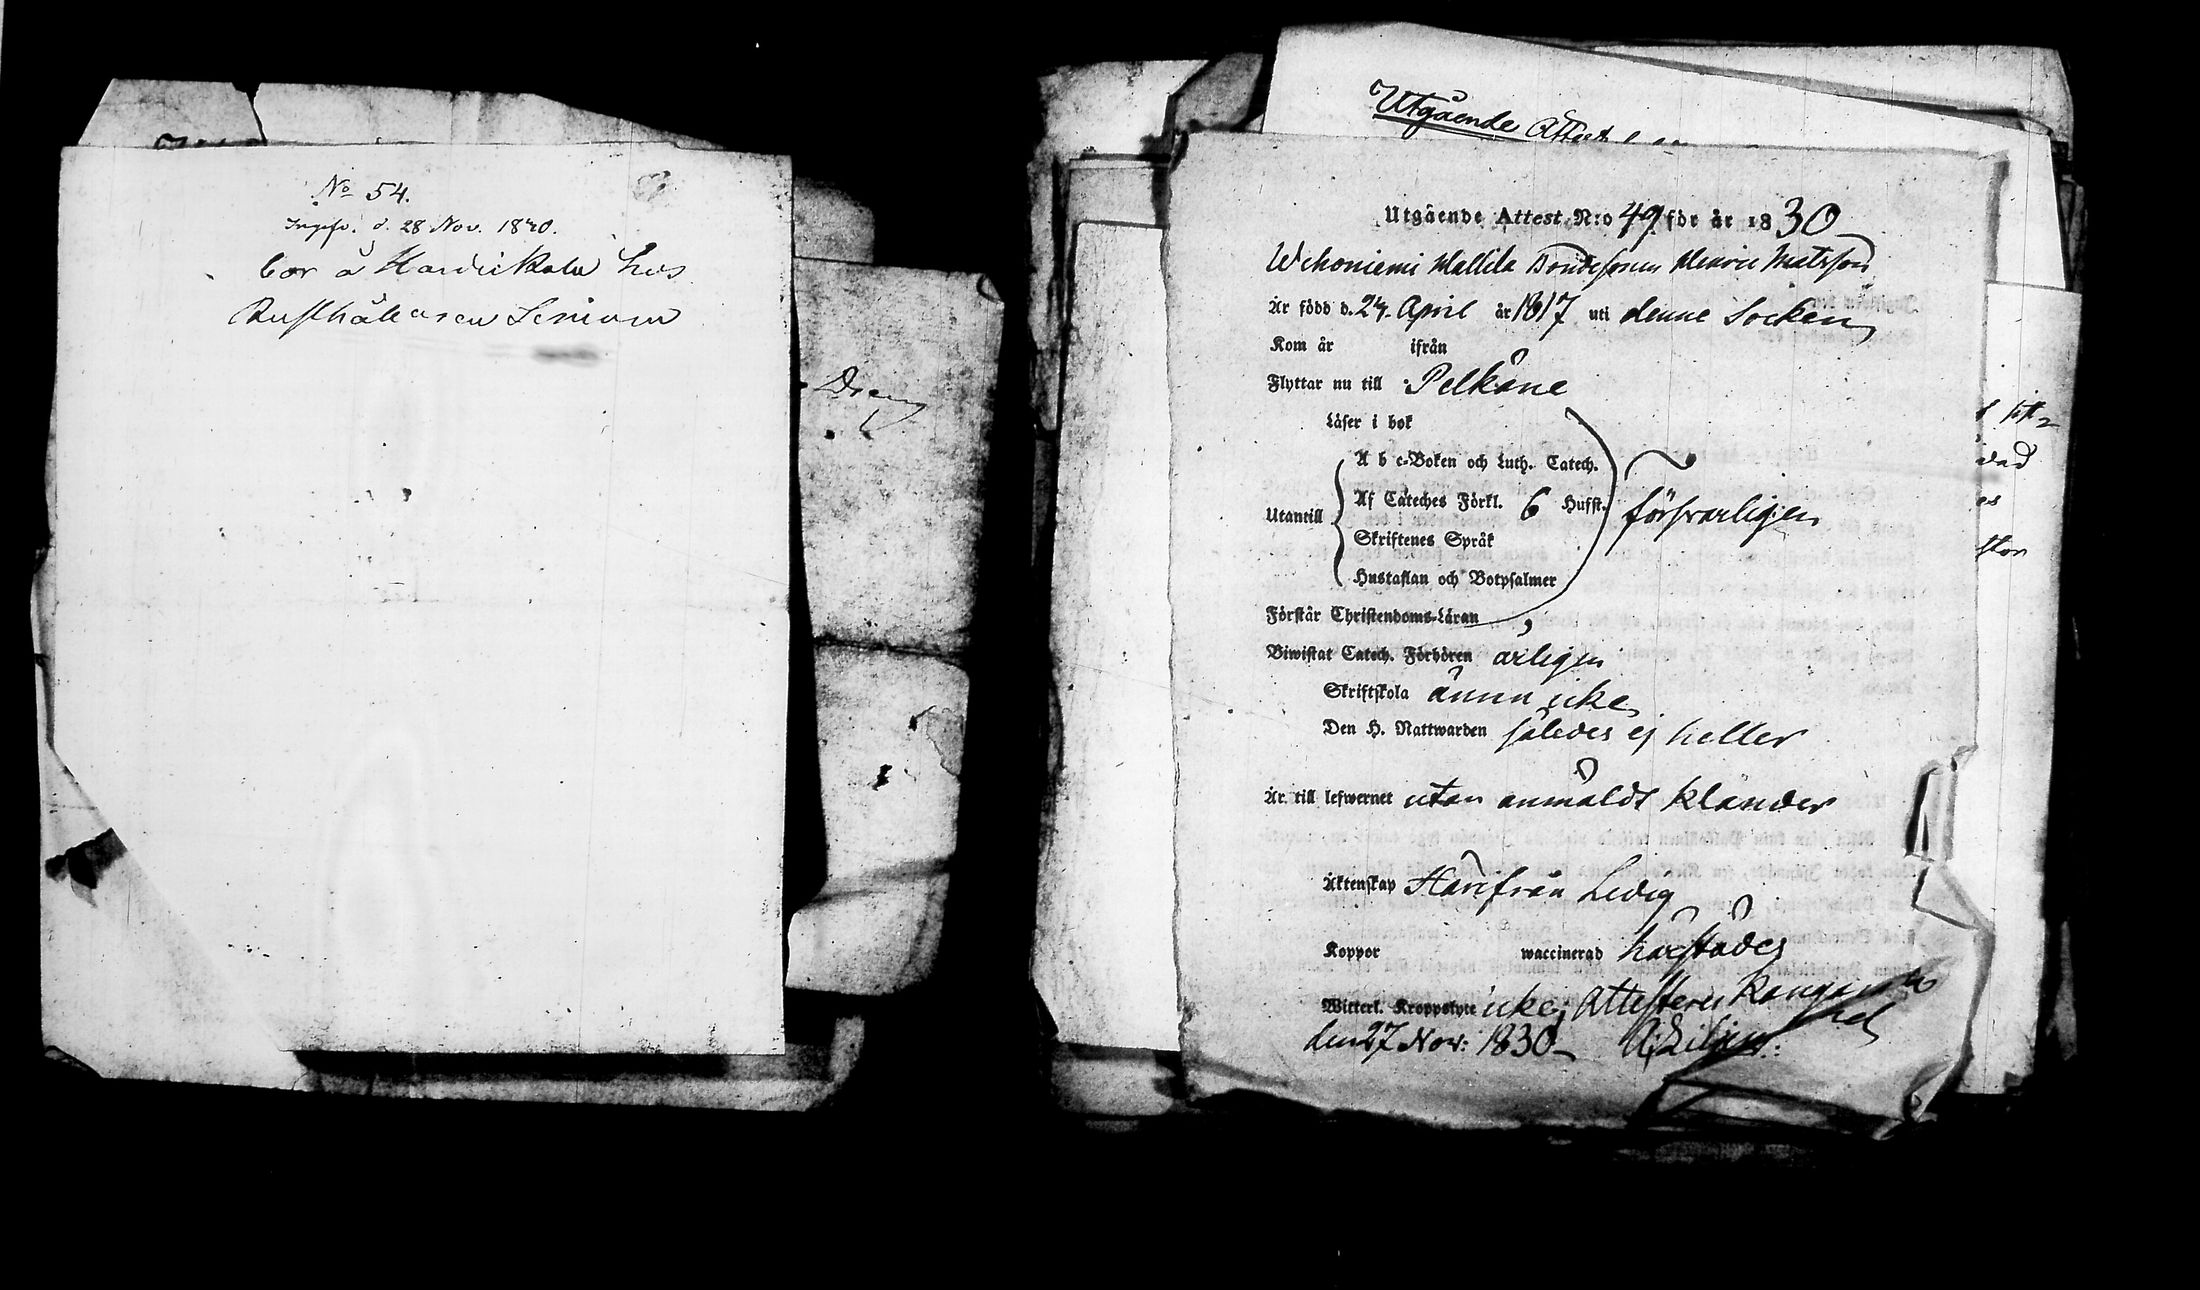 No 54.
d. 28 Nov. 1830.
bor å hos
Rusthållaren
Dreng
Utgående Attest
Utgående Attest N:o 49 för år 1830
Wehoniemi Mattila Bondesonen Henric Matsson
Är född d. 24 April år 1817 uti denne Socken
Kom år ifrån
Flyttar nu till Pelkäne
Läser i bok
A b c-Boken och Luth. Catech.
Utantill Af Cateches Förkl. 6 Hufst. försvarligen
Skriftenes Språk
Hustaflan och Botpsalmer
Förstår Christendoms-Läran
Biwistat Catech. Förhören årligen
Skriftskola ännu icke
Den H. Nattwarden således ej heller
Är till lefwernet utan anmäldt klander
Äktenskap Härifrån Ledig
Koppor waccinerad härstädes
Witterl. Kroppslyte icke; Attesterer Kangasala
den 27 Nov: 1830